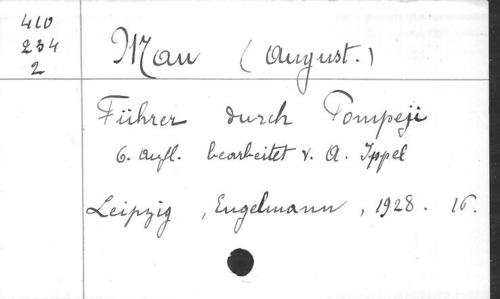 410
234
2
Mau (August.)
Führer durch Pompeji
6. Aufl. bearbeitet v. A. Ippel
Leipzig, Engelmann, 1928. 16.